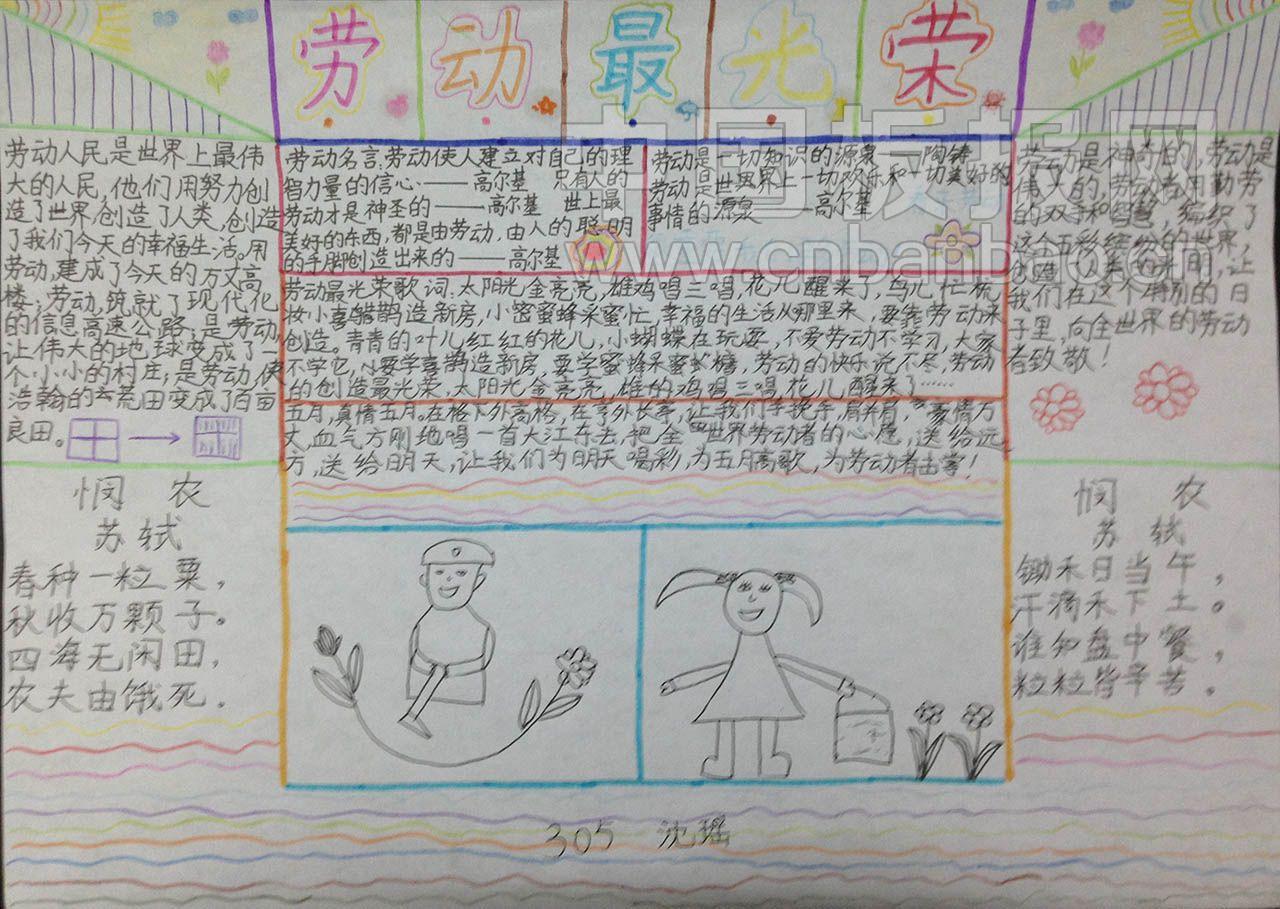 劳动最光荣
劳动人民是世界上最伟
大的人民,他们用努力创
造了世界,创造了人类,创造
了我们今天的幸福生活。用
劳动,建成了今天的万丈高
楼;劳动,筑就了现代化
的信息高速公路;是劳动,
让伟大的地球变成了一
个小小的村庄;是劳动,使
浩翰的荒田变成了百亩
良田。
劳动名言,劳动使人建立对自己的理
智力量的信心.——高尔基 只有人的
劳动才是神圣的——高尔基 世上最
美好的东西,都是由劳动,由人的聪明
的手脚创造出来的——高尔基
劳动是一切知识的源泉——陶铸
劳动是世界上一切欢乐和一切美好的
事情的源泉——高尔基
劳动是神奇的,劳动是
伟大的,劳动者用勤劳
的双手和智慧,编织了
这个五彩缤纷的世界,
创造了人类的文明,让
我们在这个特别的日
子里,向全世界的劳动
者致敬!
劳动最光荣歌词:太阳光金亮亮,雄鸡唱三唱,花儿醒来了,鸟儿忙梳
妆小喜鹊造新房,小蜜蜂采蜜忙,幸福的生活从哪里来,要靠劳动来
创造。青青的叶儿红红的花儿,小蝴蝶在玩耍,不爱劳动不学习,大家
不学它,要学喜鹊造新房,要学蜜蜂采蜜糖,劳动的快乐说不尽,劳动
的创造最光荣,太阳光金亮亮,雄的鸡唱三唱,花儿醒来了……
五月,真情五月。在格外高格,在亭外长亭,让我们手挽手,肩并肩,豪情万
丈,血气方刚地唱一首大江东去,把全世界劳动者的心愿,送给远
方,送给明天,让我们为明天喝彩,为五月高歌,为劳动者击掌!
悯 农
苏轼
春种一粒粟,
秋收万颗子。
四海无闲田,
农夫由饿死.
悯 农
苏轼
锄禾日当午,
汗滴禾下土。
谁知盘中餐,
粒粒皆辛苦。
305 沈瑶
中国板报网
www.cnbanbao.cn